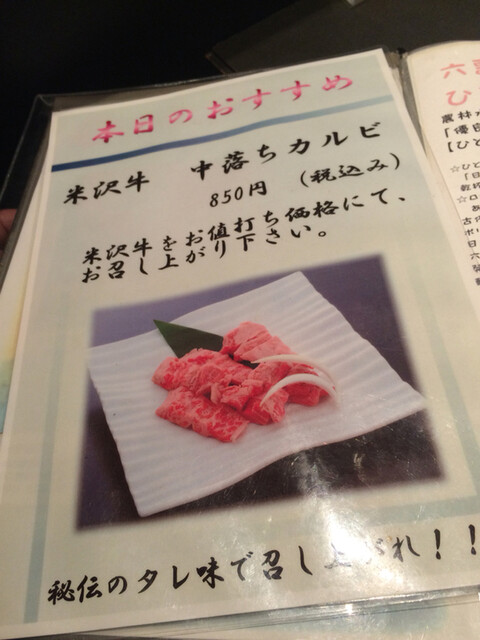 本日のおすすめ
米沢牛 中落ちカルビ
850円 (税込み)
米沢牛をお値打ち価格にて、
お召し上がり下さい。
秘伝のタレ味で召し上がれ！！
六
ひ
農林
「優良
【ひと
☆ひと
「日
乾杯
☆ロ
あ
古代
ポリ
日
六